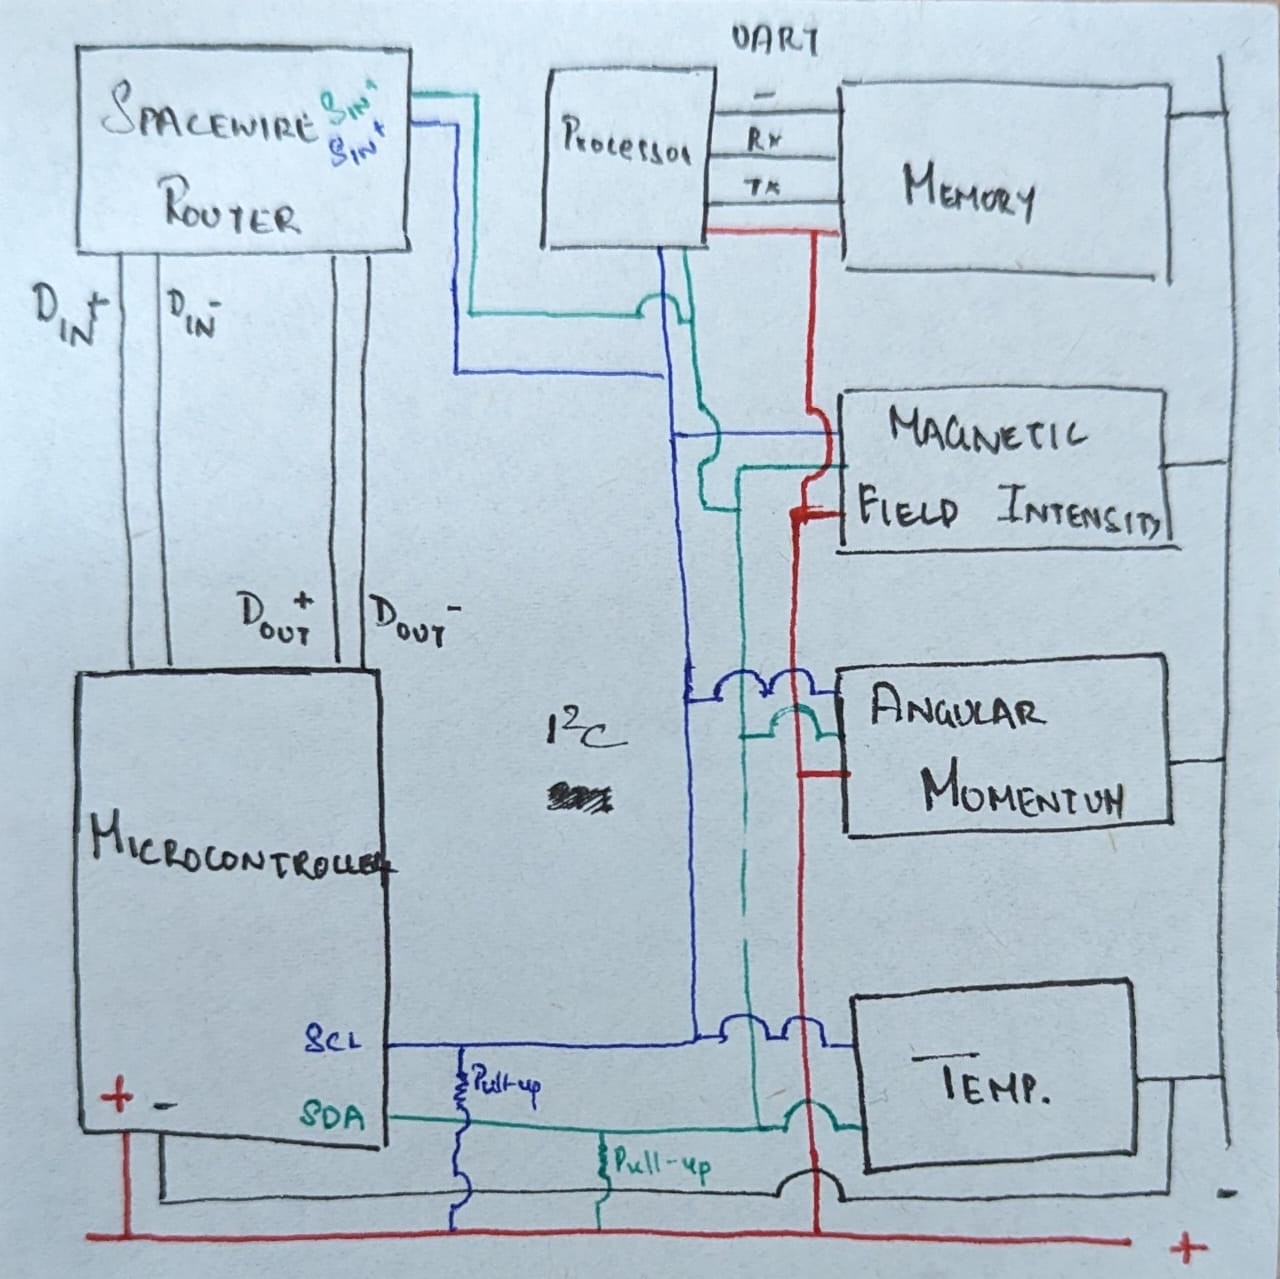 UART
-
SPACEWIRE SIN+
SIN+
ROUTER
PROCESSOR
RX
TX
MEMORY
DIN+
DIN-
MAGNETIC
FIELD INTENSITY
DOUT+
DOUT-
I2C
ANGULAR
MOMENTUM
MICROCONTROLLER
SCL
Pull-up
TEMP.
+ -
SDA
Pull-up
-
+